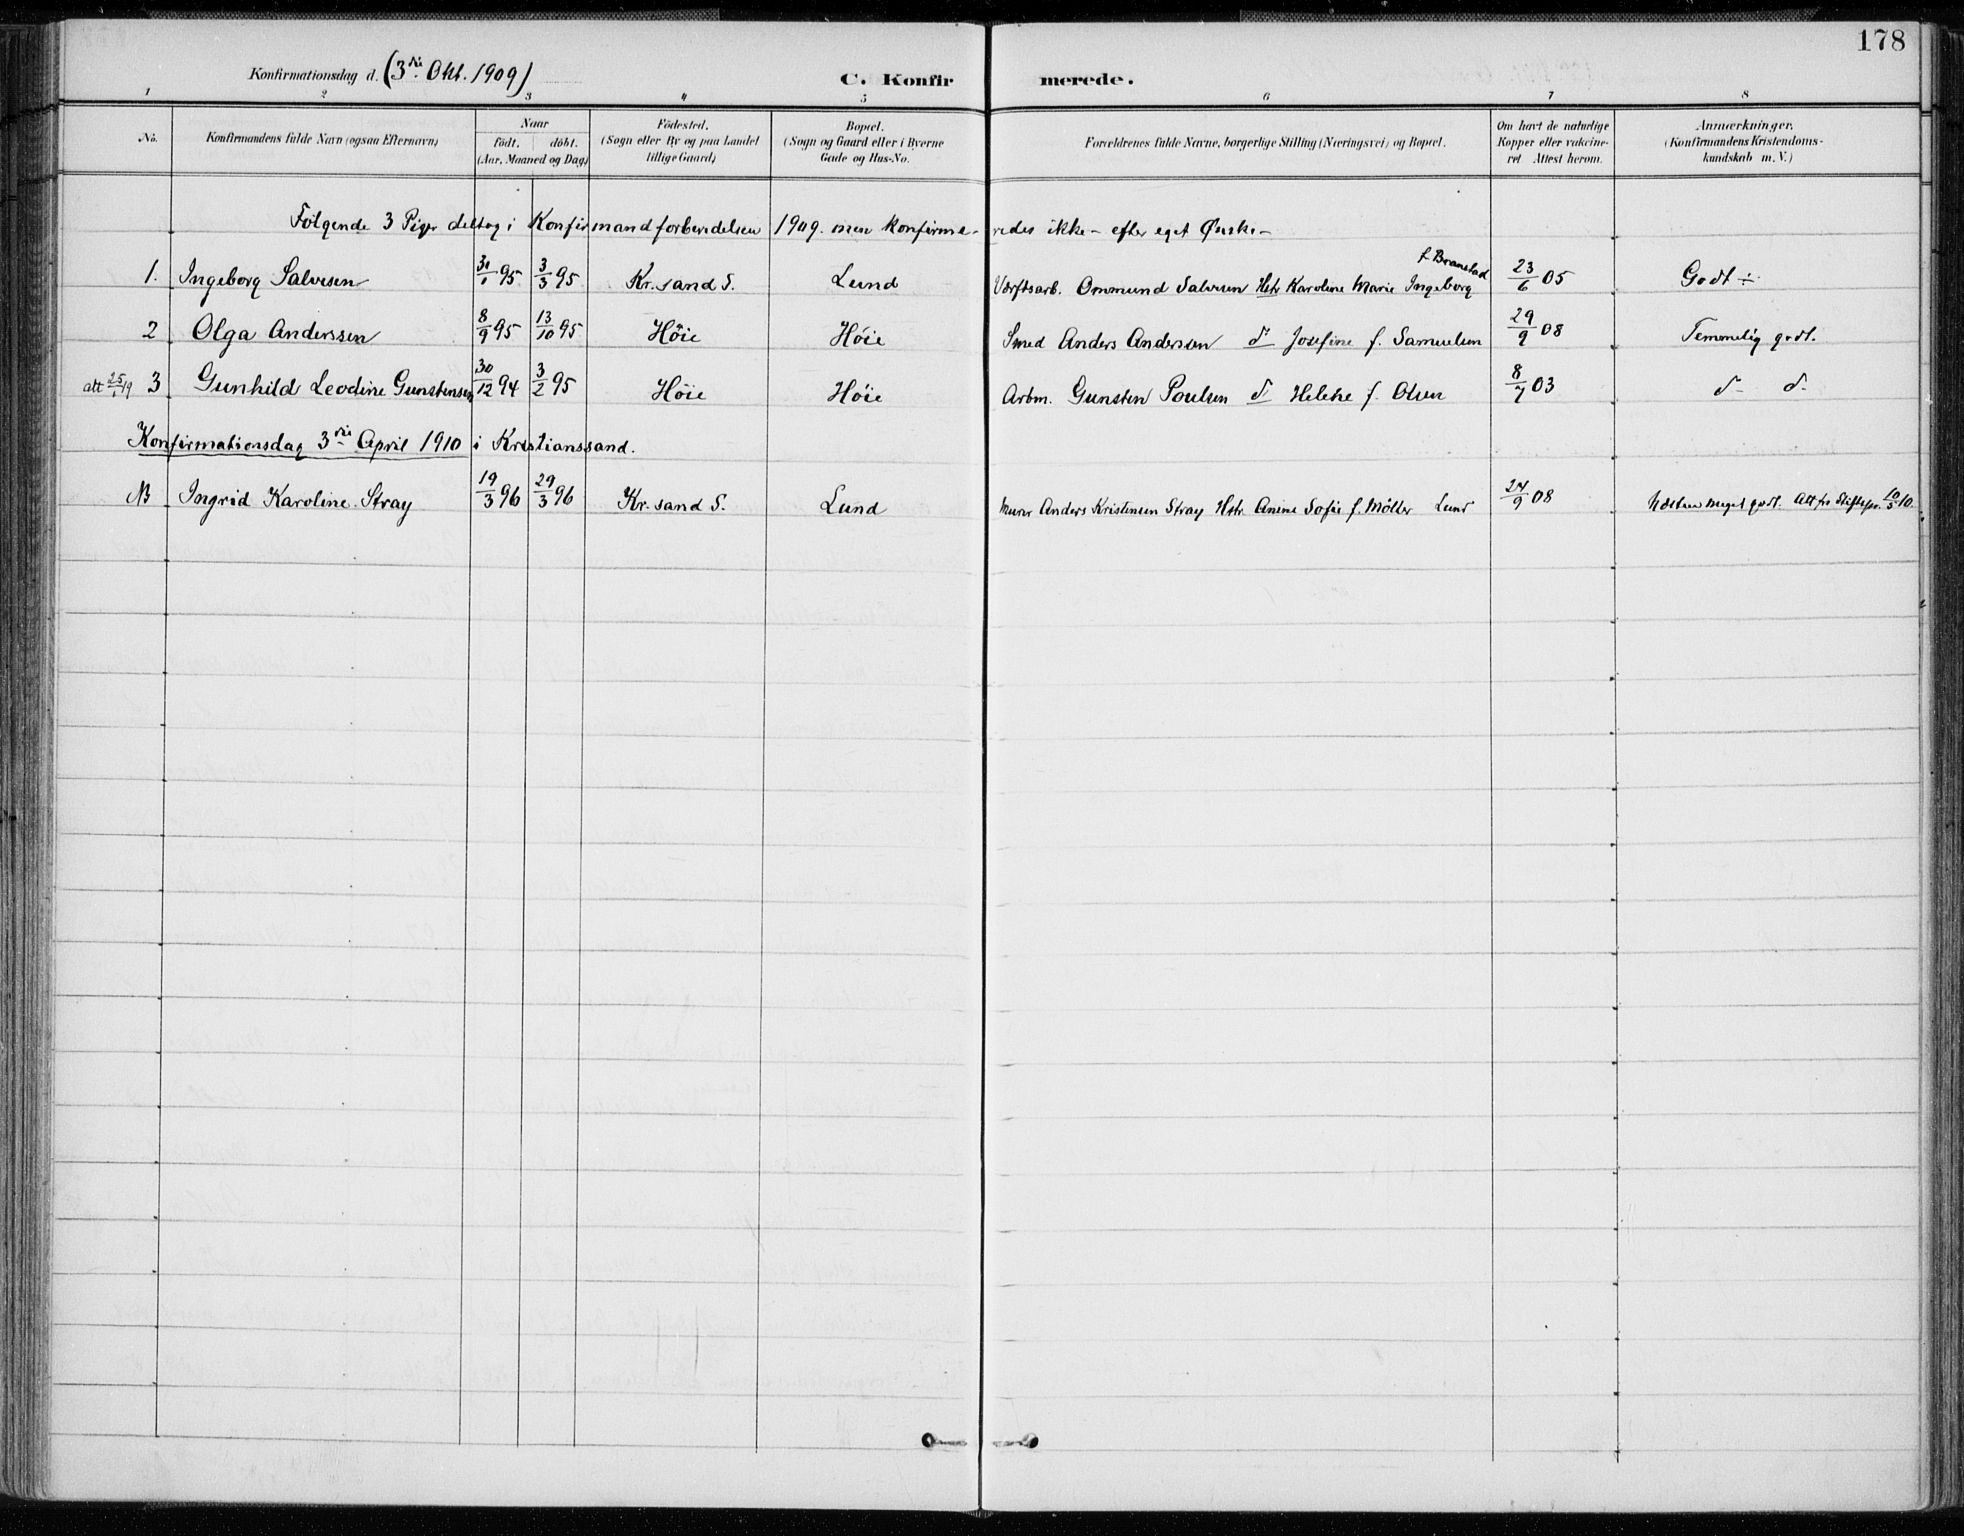 178
Konfirmationsdag d. (3die Okt. 1909) C. Konfirmerede.
1 2 3 4 5 6 7 8
No. Konfirmandens fulde Navn (ogsaa Efternavn) Naar født. døbt. (Aar, Maaned og Dag) Fødested. (Sogn eller By og paa Landet tillige Gaard) Bopæl. (Sogn og Gaard eller i Byerne Gade og Hus-No. Forældrenes fulde Navne, borgerlige Stilling (Næringsvei) og Bopæl. Om havt de naturlige Kopper eller vakcineret. Attest herom. Anmærkninger. (Konfirmandens Kristendomskundskab m. V.)
Følgende 3 Piger deltog i Konfirmandforberedelsen 1909. men konfirmeredes ikke – efter eget Ønske –
1. Ingeborg Salvesen 31/1 95 3/3 95 Kr.sand S. Lund Værftsarb. Ommund Salvesen Hstr Karoline Marie Ingeborg f. Branstad 23/6 05 Godt ÷
2 Olga Anderssen 8/9 95 13/10 95 Høie Høie Smed Anders Andersen do Josefine f. Samuelsen 29/9 08 Temmelig godt.
att 25/1 19 3 Gunhild Leodine Gunstensen 30/12 94 3/2 95 Høie Høie Arbm. Gunsten Poulsen do Helene f. Olsen 8/7 03 do do
Konfirmationsdag 3die April 1910 i Kristianssand.
NB Ingrid Karoline Stray 19/3 96 29/3 96 Kr.sand S. Lund Murer Anders Kristensen Stray Hstr. Anine Sofie f. Møller Lund 24/9 08 Næsten meget godt. Att fr Stiftspr. 10/5 10.